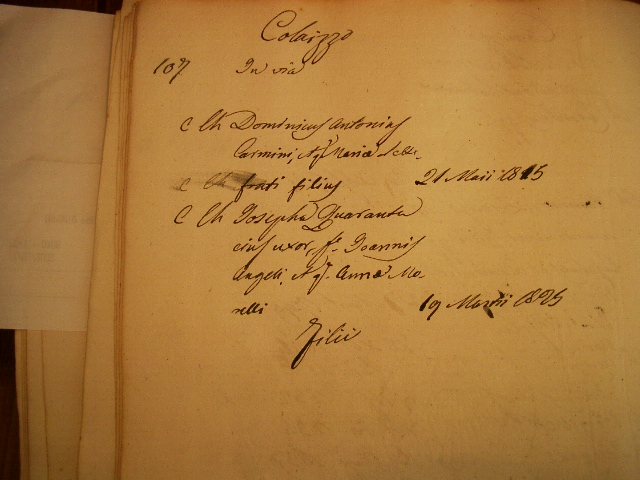 Colaizzo
107 In via
C Ch Dominicus Antonius
Carmini, & q.m Maria
C Ch filius 21 Maii 18
C Ch Josepha Quaranta
ejus uxor, f.a Joannis
Angeli, & q.m Anna Mo
relli 19 Martii 1825
Filii